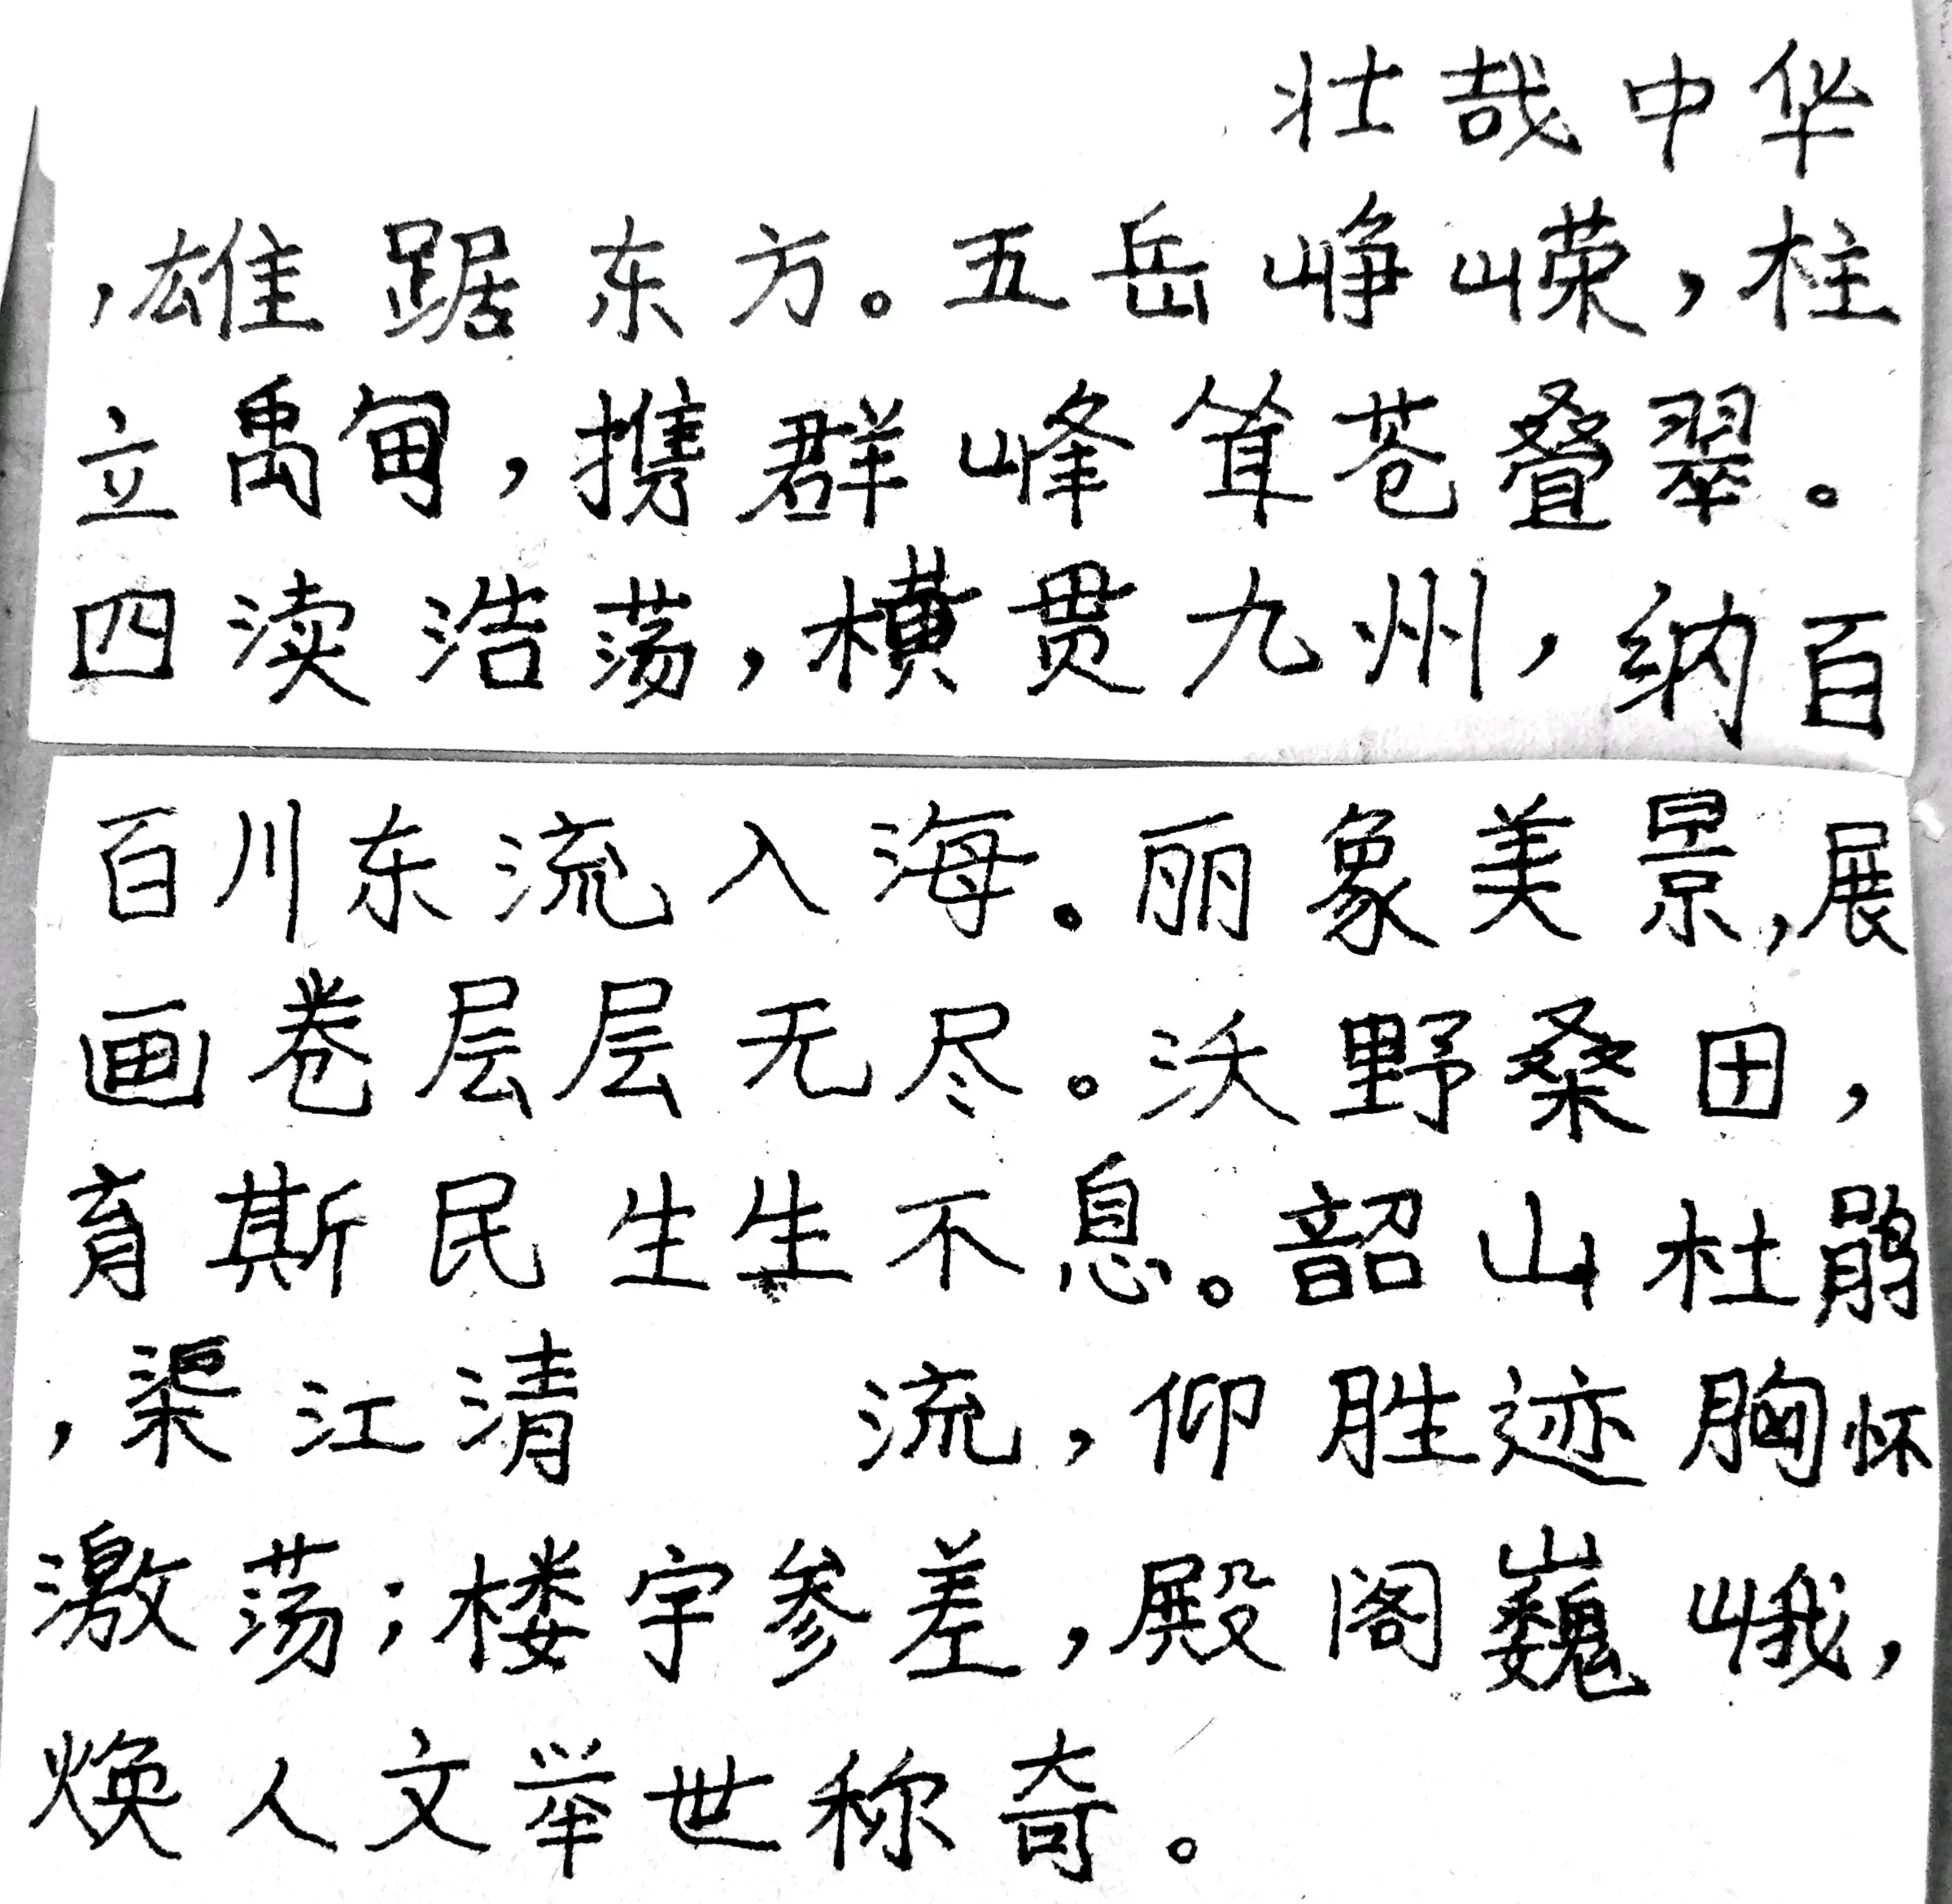 壮哉中华
，雄踞东方。五岳峥嵘，柱
立禹甸，携群峰耸苍叠翠。
四渎浩荡，横贯九州，纳百
百川东流入海。丽象美景，展
画卷层层无尽。沃野桑田，
育斯民生生不息。韶山杜鹃
，渠江清 流，仰胜迹胸怀
激荡；楼宇参差，殿阁巍峨，
焕人文举世称奇。